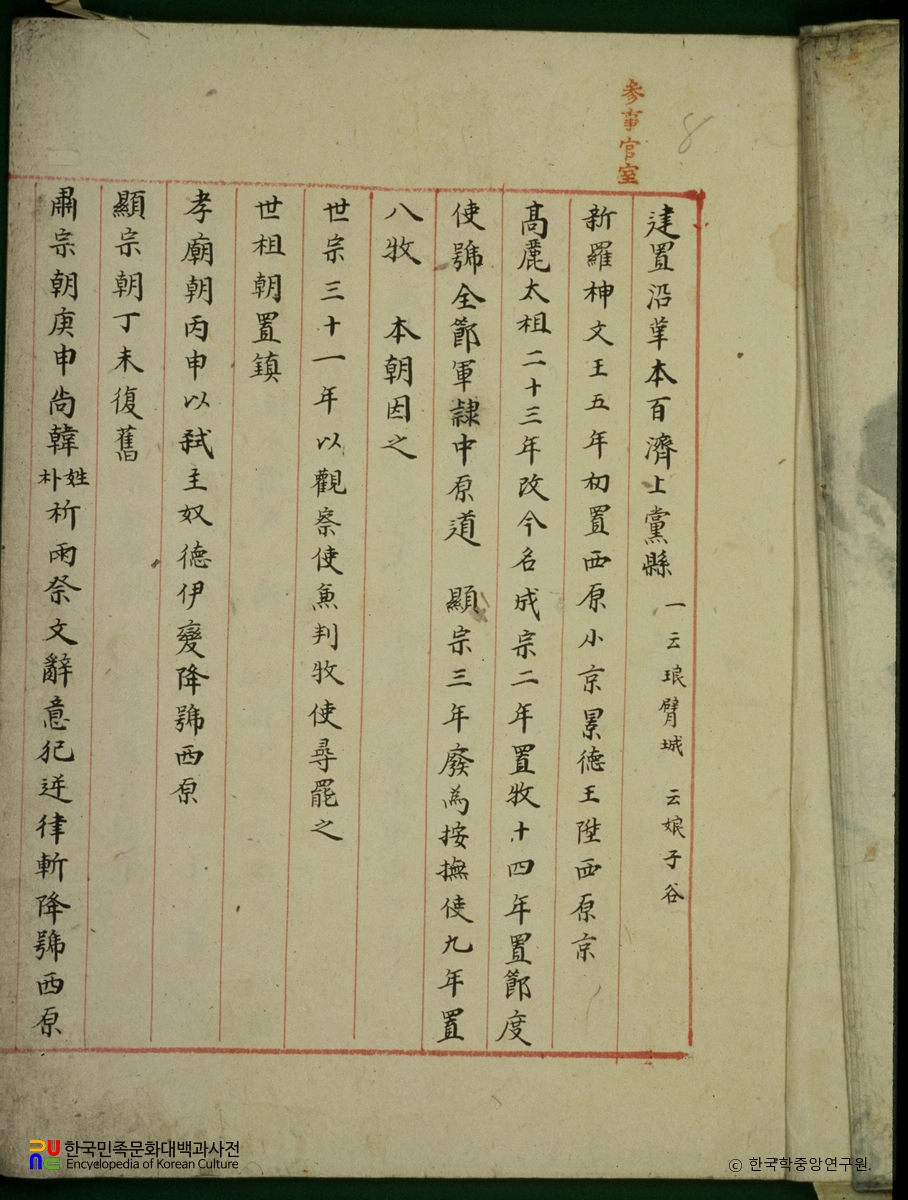 参事官室
8
建置沿革本百濟上黨縣 一云琅臂城 云娘子谷
新羅神文王五年初置西原小京景德王陞西原京
高麗太祖二十三年改今名成宗二年置牧十四年置節度
使號全節軍隷中原道 顯宗三年廢為按撫使九年置
八牧 本朝因之
世宗三十一年以觀察使兼判牧使尋罷之
世祖朝置鎮
孝廟朝丙申以弑主奴德伊變降號西原
顯宗朝丁未復舊
肅宗朝庚申尙韓姓朴祈雨祭文辭意犯逆律斬降號西原
한국민족문화대백과사전
Encyclopedia of Korean Culture
ⓒ 한국학중앙연구원.